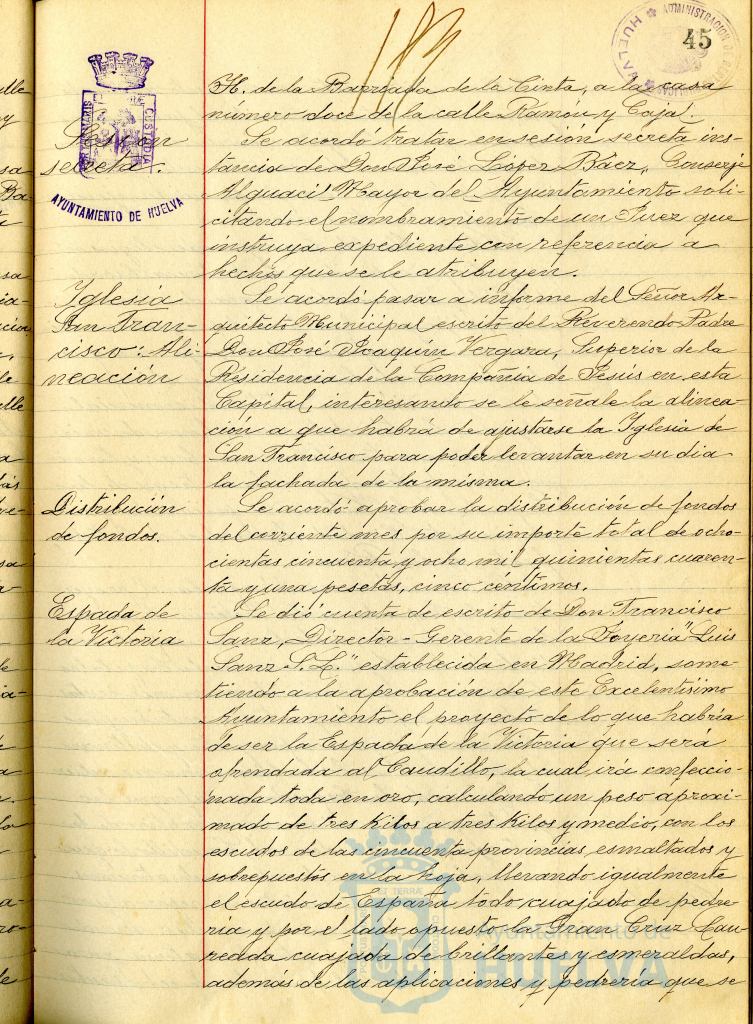 45
ADMINISTRACION DE
HUELVA
H. de la Barriada de la Cinta, a la casa
número doce de la calle Ramón y Cajal.
Sesión
secreta.
AYUNTAMIENTO DE HUELVA
Se acordó tratar en sesión secreta ins-
tancia de Don José López Báez, Conserje
Alguacil Mayor del Ayuntamiento soli-
citando el nombramiento de un Juez que
instruya expediente con referencia a
hechos que se le atribuyen.
Iglesia
San Fran-
cisco: Ali-
neación
Se acordó pasar a informe del Señor Ar-
quitecto Municipal escrito del Reverendo Padre
Don José Joaquín Vergara, Superior de la
Residencia de la Compañía de Jesús en esta
Capital, interesando se le señale la alinea-
ción a que habrá de ajustarse la Iglesia de
San Francisco para poder levantar en su dia
la fachada de la misma.
Distribución
de fondos.
Se acordó aprobar la distribución de fondos
del corriente mes por su importe total de ocho-
cientas cincuenta y ocho mil quinientas cuaren-
ta y una pesetas, cinco céntimos.
Espada de
la Victoria
Se dió cuenta de escrito de Don Francisco
Sanz, Director-Gerente de la Joyeria "Luis
Sanz S.L." establecida en Madrid, some-
tiendo a la aprobación de este Excelentísimo
Ayuntamiento el proyecto de lo que habría
de ser la Espada de la Victoria que será
ofrendada al Caudillo, la cual irá confeccio-
nada toda en oro, calculando un peso aproxi-
mado de tres kilos a tres kilos y medio, con los
escudos de las cincuenta provincias esmaltados y
sobrepuestos en la hoja, llevando igualmente
el escudo de España todo cuajado de pedre-
ria y por el lado opuesto la Gran Cruz Lau-
reada cuajada de brillantes y esmeraldas,
además de las aplicaciones y pedrería que se
Ayuntamiento de
HUELVA